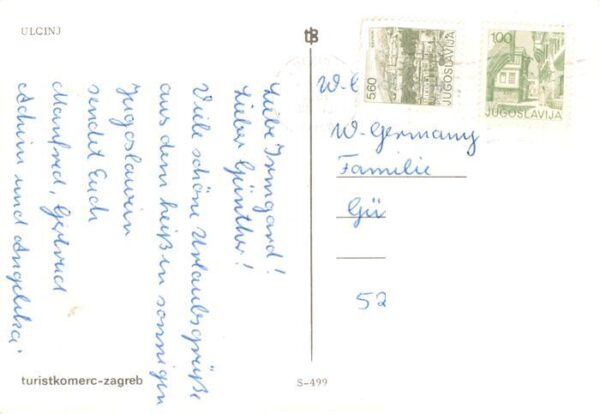 ULCINJ
Liebe Irmgard!
Lieber Günther!
Viele schöne Urlaubsgrüße
aus dem heißen sonnigen
Jugoslawien
sendet Euch
Manfred, Gertrud
Achim und Angelika.
turistkomerc-zagreb
S-499
560
JUGOSLAVIJA
100
JUGOSLAVIJA
W-
W-Germany
Familie
Gü
52